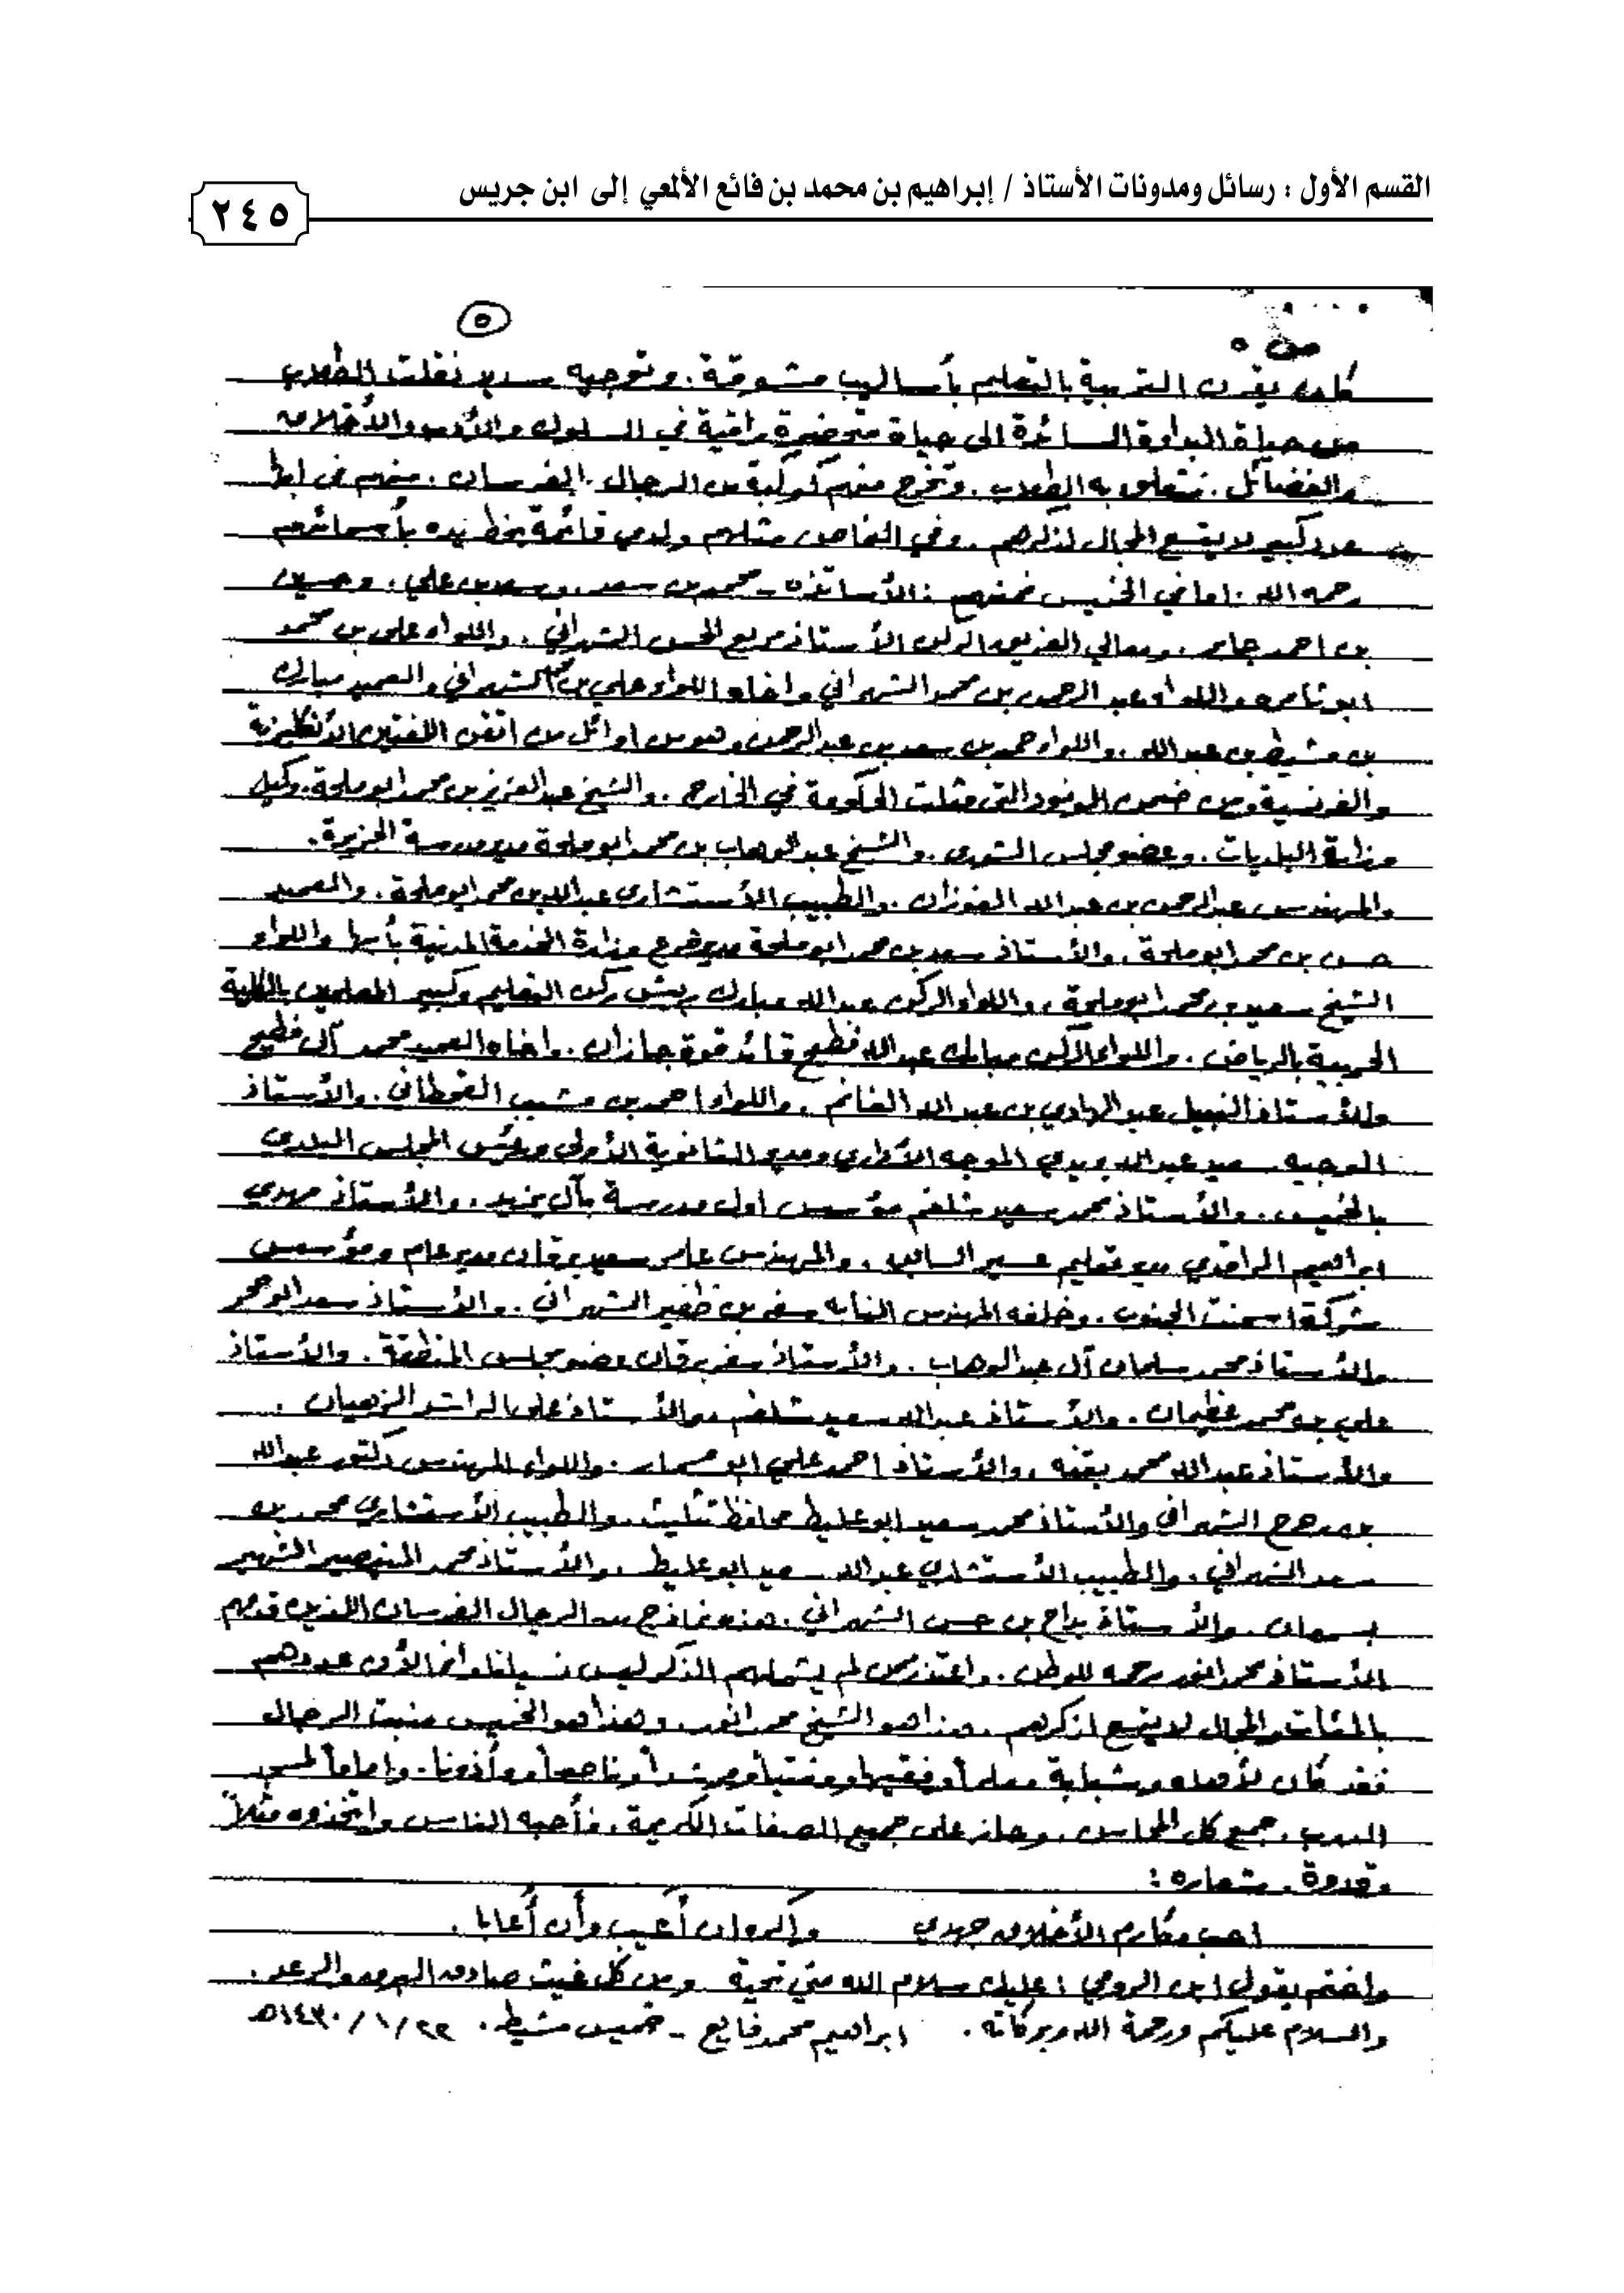 القسم الأول : رسائل ومدونات الأستاذ / إبراهيم بن محمد بن فائع الألمعي إلى ابن جريس
٢٤٥
٥
ص ٥
كان يقرن التربية بالتعليم بأساليب مشوقة . وتوجيه سديد نقلت الطلاب
من حياة البداوة السائدة الى حياة متحضرة راقية في السلوك والأدب والأخلاق
والفضائل . فتعلق به الطلاب . وتخرج منهم كوكبة من الرجال الفرسان . منهم في ابها
عدد كبير لا يتسع المجال لذكرهم . وفي النماص مثلهم ولدي قائمة بخط يده بأسمائهم
رحمه الله . اما في الخميس فمنهم : الأساتذة - محمد بن سعد . وسعد بن علي . وحسين
بن احمد جابر . ومعالي الفريق الركن الأستاذ مريع الحسن الشهراني . واللواء علي بن محمد
ابو ثامره واللواء عبد الرحمن بن محمد الشهراني واخاه اللواء علي بن محمد الشهراني والعميد مبارك
بن مشيط بن عبدالله . واللواء حمد بن سعد بن عبدالرحمن وهو من اوائل من اتقن اللغتين الأنكليزية
والفرنسية ومن ضمن الوفود التي مثلت الحكومة في الخارج . والشيخ عبدالعزيز بن محمد ابو ملحة . وكيل
وزارة البلديات . وعضو مجلس الشورى . والشيخ عبدالوهاب بن محمد ابو ملحة مدير مدرسة الجزيرة .
والمهندس عبدالرحمن بن عبدالله الفوزان . والطبيب الأستشاري عبدالله بن محمد ابو ملحة . والعميد
حسن بن محمد ابو ملحة . والأستاذ سعد بن محمد ابو ملحة مدير فرع وزارة الخدمة المدنية بأبها واللواء
الشيخ سعيد بن محمد ابو ملحة . واللواء الركن عبدالله مبارك رئيس ركن التعليم وكبير المعلمين بالكلية
الحربية بالرياض . واللواء الركن مبارك عبدالله فطيح قائد قوة جازان . واخاه العميد محمد آل فطيح
والأستاذ النبيل عبدالهادي بن عبدالله الغانم . واللواء احمد بن مشبب القحطاني . والأستاذ
الوجيه سعيد عبدالله بريدي الموجه الأداري ومدير الثانوية الأولى ورئيس المجلس البلدي
بالخميس . والأستاذ محمد سعيد شلغم مؤسس اول مدرسة بآل يزيد . والأستاذ مهدي
ابراهيم الراقدي مدير تعليم عسير السابق . والمهندس عامر سعيد برقان مدير عام ومؤسس
شركة اسمنت الجنوب . وخلفه المهندس النابه سفر بن ظفير الشهراني . والأستاذ سعد ابو حجر
والأستاذ محمد سلمان آل عبدالوهاب . والأستاذ سفر برقان عضو مجلس المنطقة . والأستاذ
علي بن محمد عظيمان . والأستاذ عبدالله سعيد شلغم . والأستاذ علي الراشد الزهيان .
والأستاذ عبدالله محمد يقنه . والأستاذ احمد علي ابو مسمار . واللواء المهندس دكتور عبدالله
بن مدهج الشهراني والأستاذ محمد سعيد ابو عليط محافظ تثليث . والطبيب الأستشاري محمد بن
سعد الشهراني . والطبيب الأستشاري عبدالله سعيد ابو عليط . والأستاذ محمد الشهير
والأستاذ بداح بن حسن الشهراني . هذه نماذج من الرجال الفرسان اللذين قدمهم
الأستاذ محمد انور رحمه للوطن . واعتذر ممن لم يشملهم الذكر ليس نسيانا وانما لأن عددهم
بالمئات والمجال لا يتسع لذكرهم . هذا هو الشيخ محمد انور . وهذا هو الخميس منبت الرجال
فقد كان لأهله وشبابه معلماً وفقيها ومفتياً ومرشداً وناصحاً ومأذونا . واماماً لمسجد
الدرب . جمع كل المحاسن . وحاز على جميع الصفات الكريمة . فأحبه الناس واتخذوه مثلاً
وقدوة . شعاره :
احب مكارم الأخلاق جهدي واكره ان أعيب وأن أعابا .
واختم بقول ابن الرومي : عليك سلام الله مني تحية ومن كل غيث صادق البرق والرعد .
والسلام عليكم ورحمة الله وبركاته . ابراهيم محمد فايع - خميس مشيط . ٢٢/١/١٤٣٠هـ